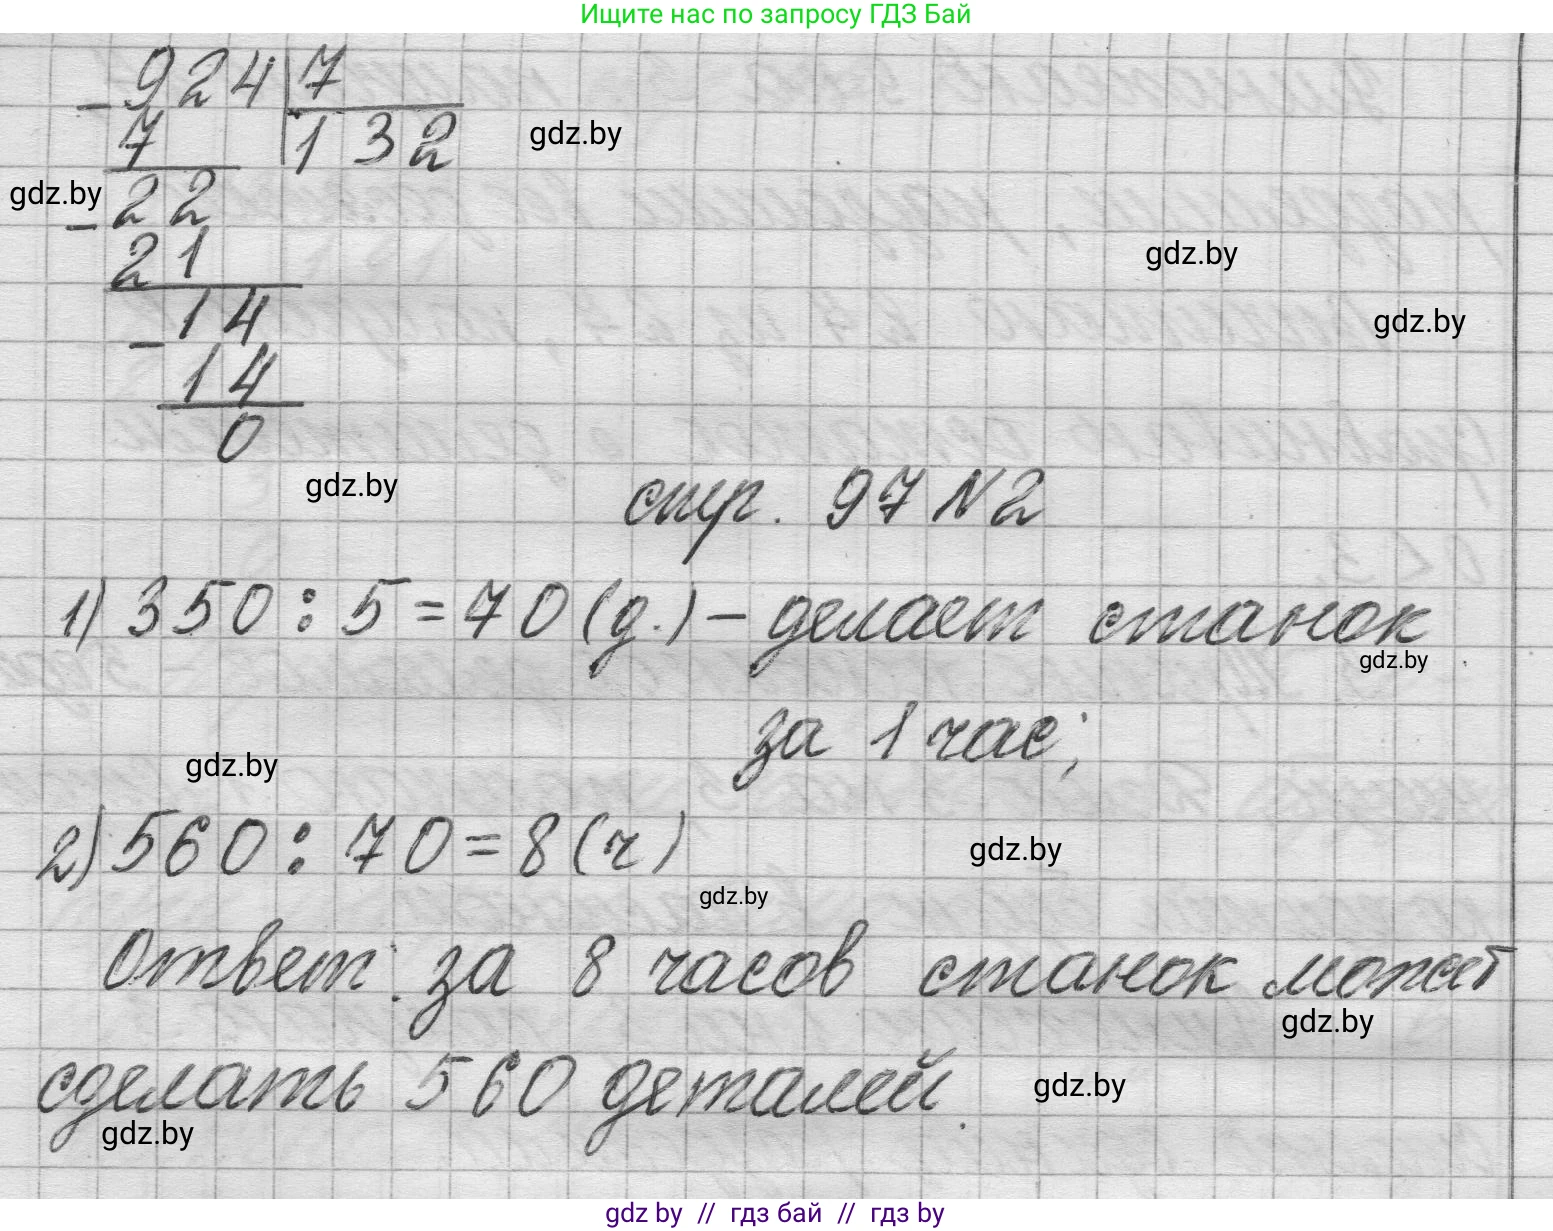 Ищите нас по запросу ГДЗ Бай
924 7
7 132 gdz.by
gdz.by
- 22
21
gdz.by
- 14
gdz.by
14
0
gdz.by
стр. 97 N2
1) 350 : 5 = 70 (д.) – делает станок
gdz.by
за 1 час;
gdz.by
2) 560 : 70 = 8 (ч)
gdz.by
gdz.by
Ответ: за 8 часов станок может
gdz.by
сделать 560 деталей.
gdz.by
gdz.by
gdz by // гдз бай // гдз by